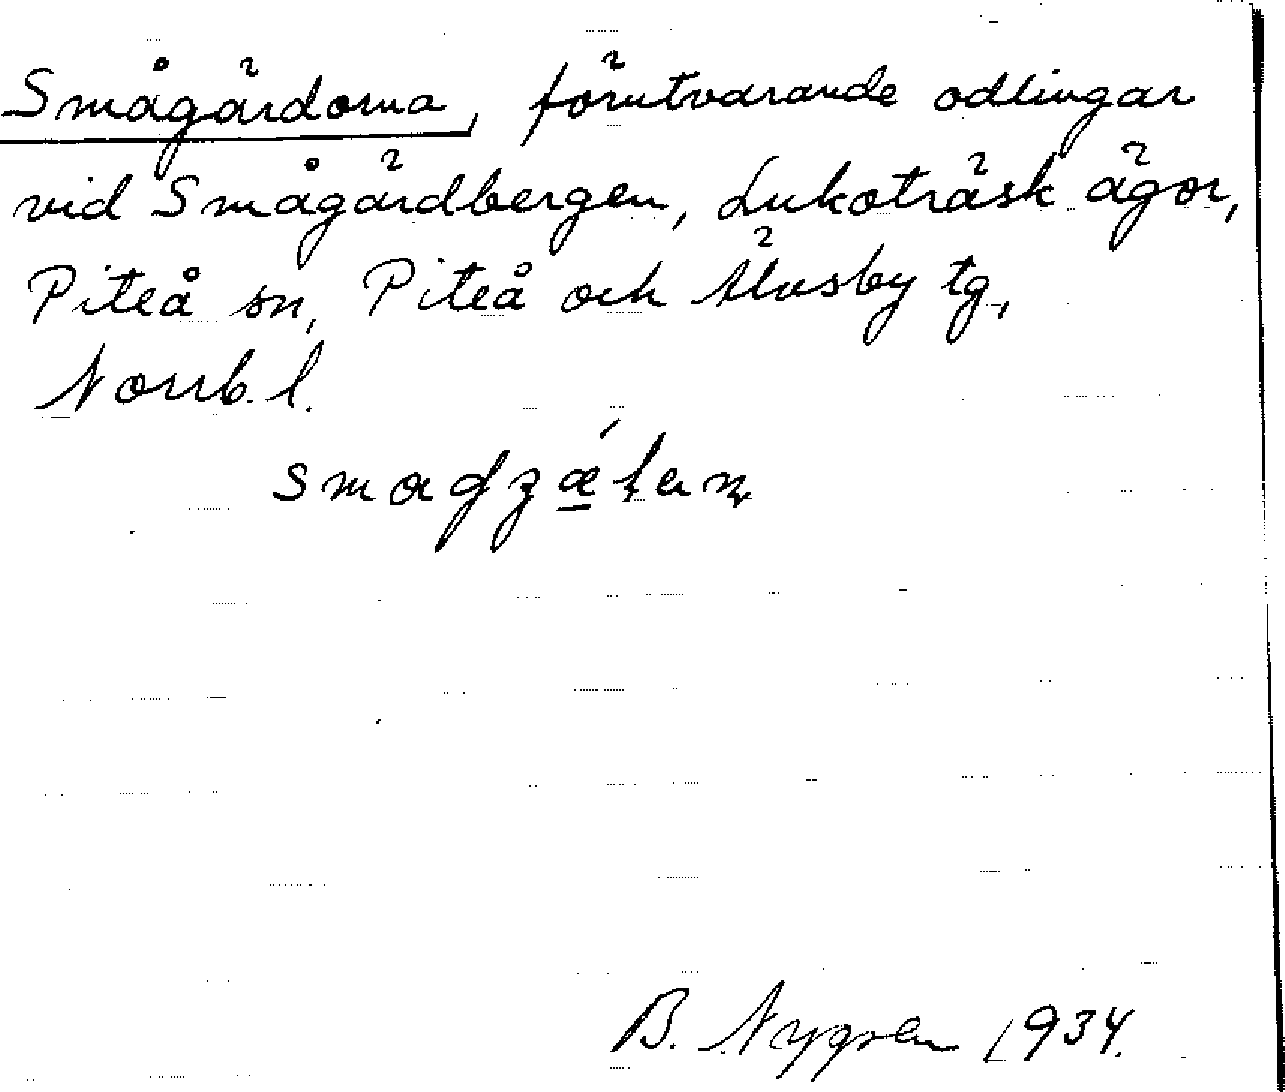 Smågärdorna, förutvarande odlingar
vid Smågärdbergen, Lukoträsk ägor,
Piteå sn, Piteå och Älvsby tg,
Norrb. l.
B. Nygren 1934.